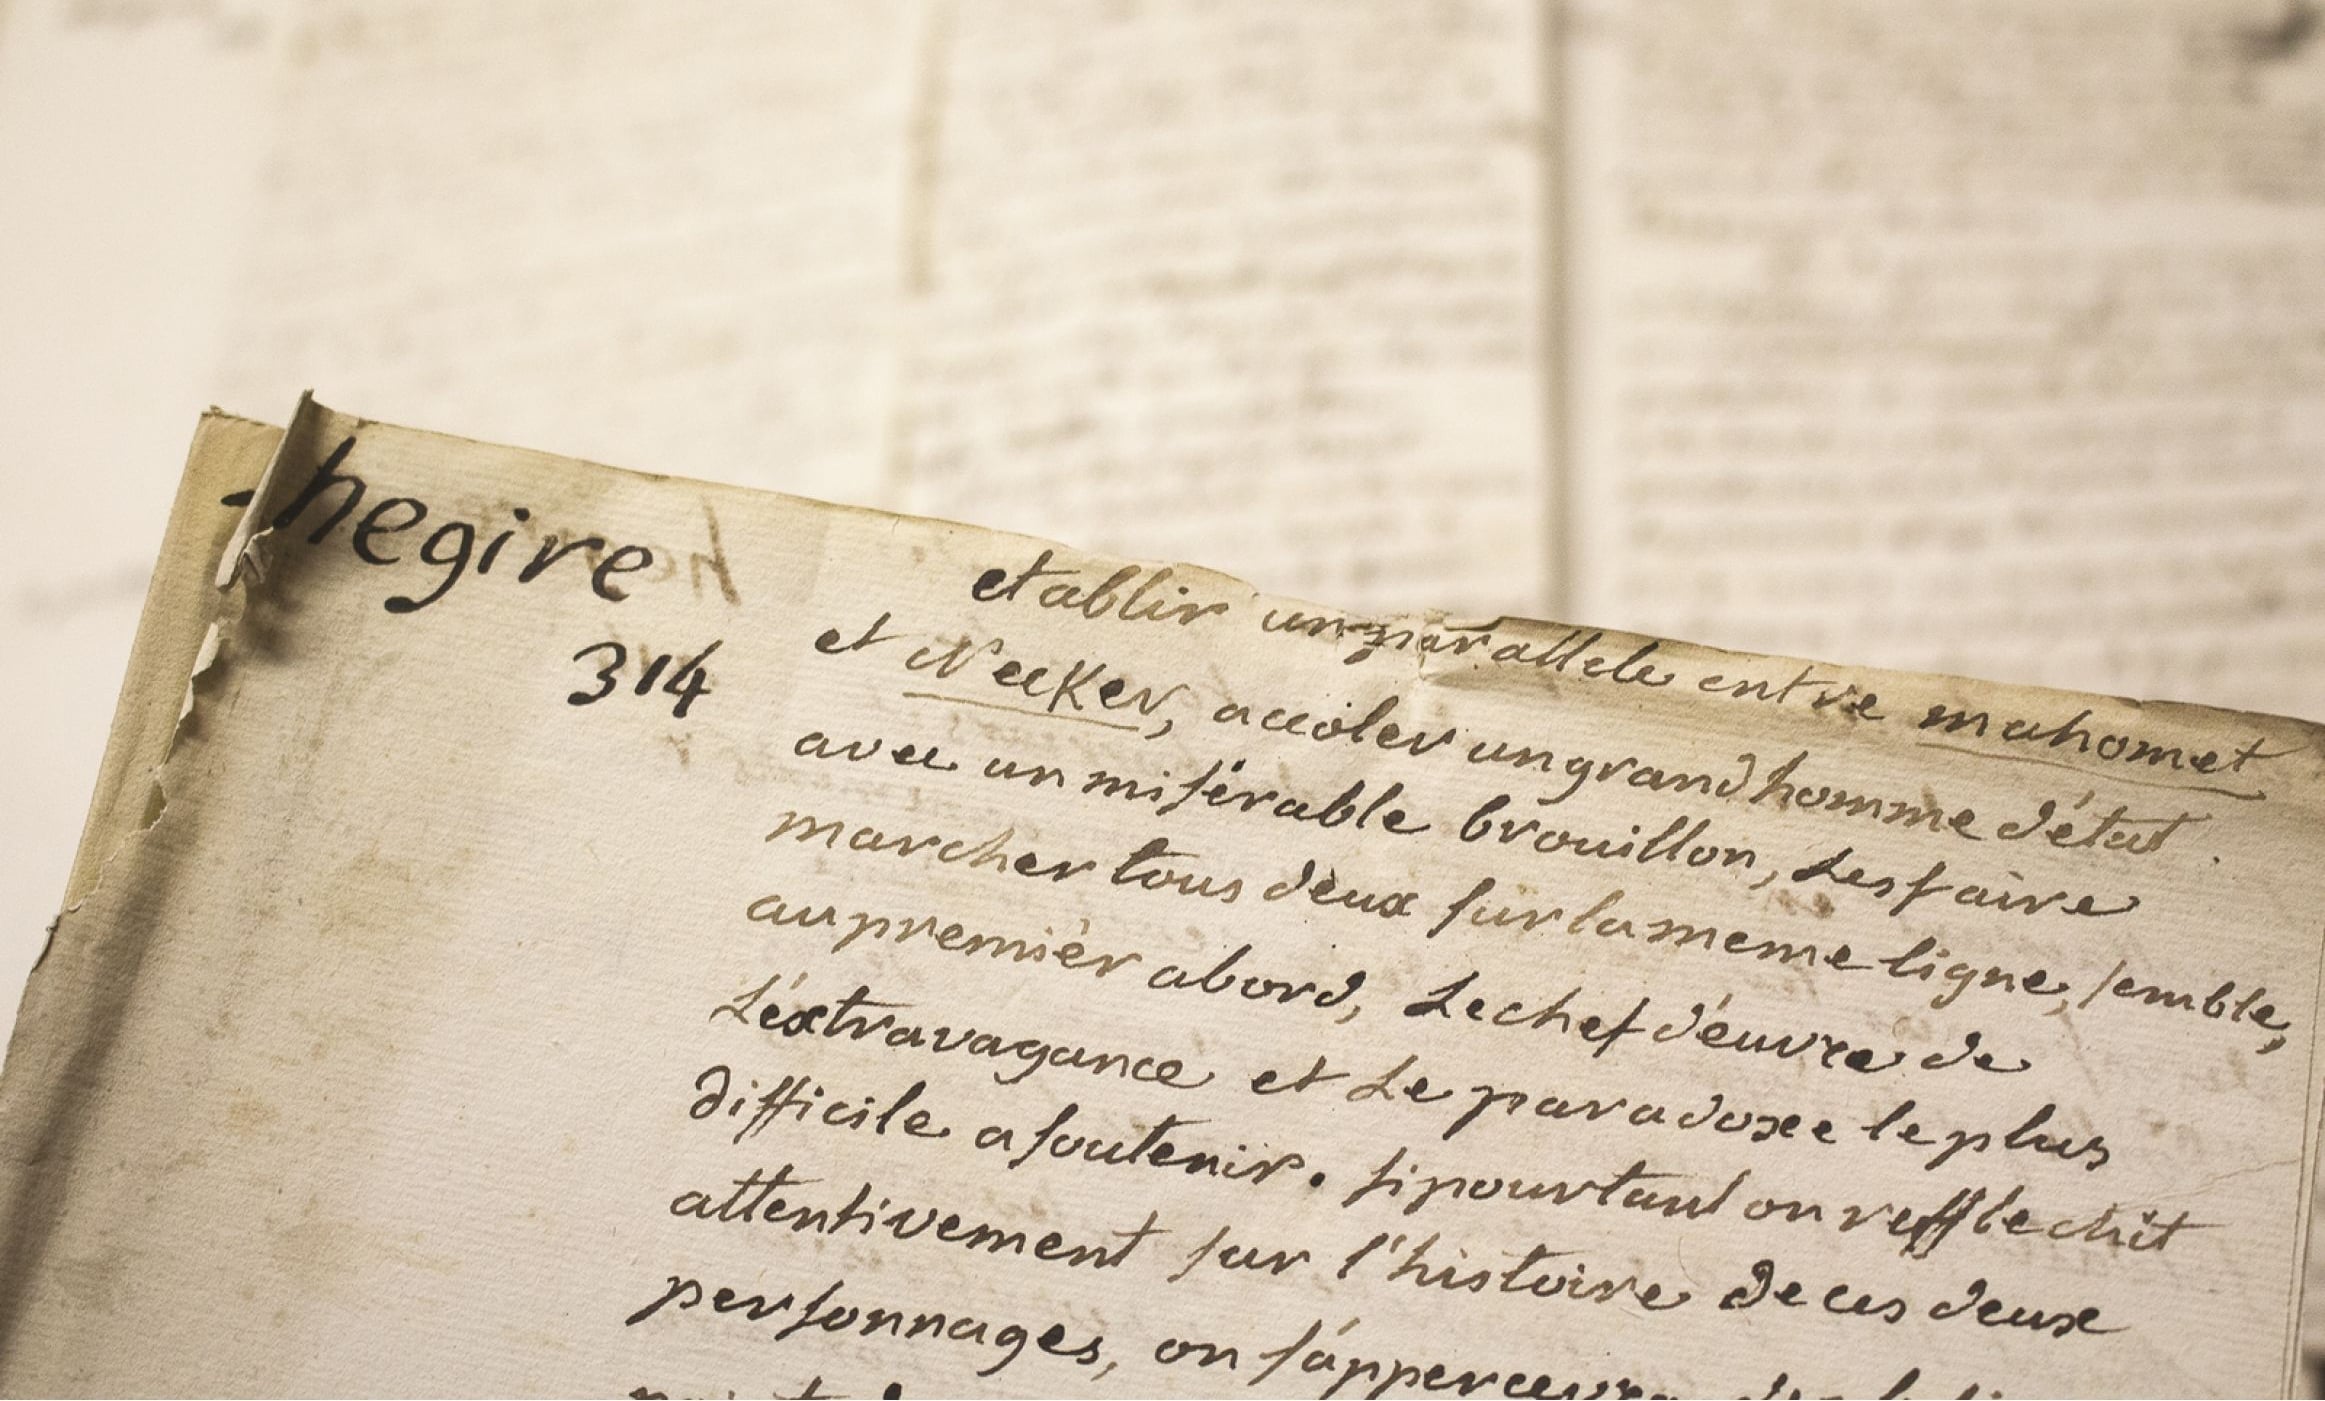 -hegire
314
etablir un parallele entre mahomet
et Necker, accoler un grand homme d'état
avec un misérable brouillon, Les faire
marcher tous deux sur la meme ligne, semble,
au premièr abord, Le chef d'euvre de
L'éxtravagance et Le paradoxe le plus
difficile a soutenir. si pourtant on reflechit
attentivement sur l'histoire de ces deux
personnages, on s'appercevra